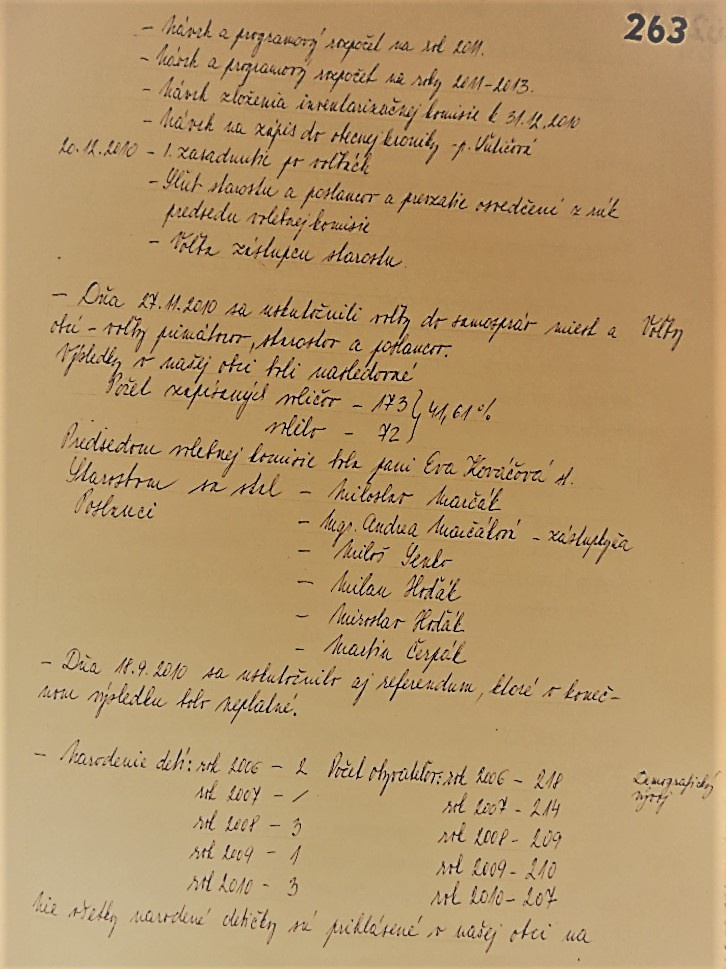 263
- Návrh a programový rozpočet na rok 2011.
- Návrh a programový rozpočet na roky 2011-2013.
- Návrh zloženia inventarizačnej komisie k 31.12.2010
- Návrh na zápis do obecnej kroniky - p. Vuličová
20.12.2010 - 1. zasadnutie po voľbách
- Sľub starostu a poslancov a prevzatie osvedčení z rúk
predsedu volebnej komisie
- Voľba zástupcu starostu.
- Dňa 27.11.2010 sa uskutočnili voľby do samospráv miest a Voľby
obcí - voľby primátorov, starostov a poslancov.
Výsledky v našej obci boli nasledovné
Počet zapísaných voličov - 173 } 41,61%
volilo - 72
Predsedom volebnej komisie bola pani Eva Kováčová st.
Starostom sa stal - Miloslav Marčák
Poslanci - Mgr. Andrea Marčáková - zástupkyňa
- Miloš Senko
- Milan Hoďák
- Miroslav Hoďák
- Martin Čerpák
- Dňa 18.9.2010 sa uskutočnilo aj referendum, ktoré v koneč-
nom výsledku bolo neplatné.
- Narodenie detí: rok 2006 - 2 Počet obyvateľov: rok 2006 - 218 Demografický
vývoj
rok 2007 - / rok 2007 - 214
rok 2008 - 3 rok 2008 - 209
rok 2009 - 1 rok 2009 - 210
rok 2010 - 3 rok 2010 - 207
Nie všetky narodené detičky sú prihlásené v našej obci na